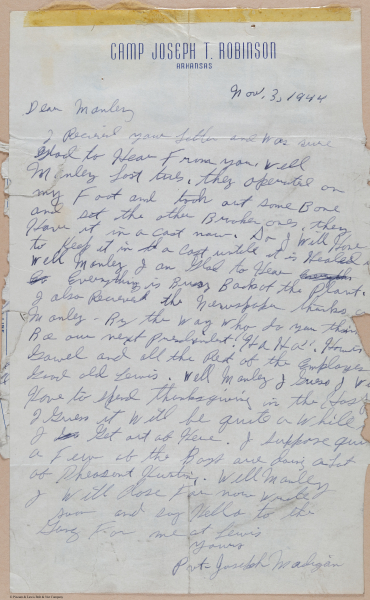 CAMP JOSEPH T. ROBINSON
ARKANSAS
Nov. 3, 1944
Dear Manley
I Received your letter and was sure
Glad to Hear From you. Well
Manley last tues. they operated on
my Foot and took out some Bone
and set the other Broken ones. they
Have it in a cast now. So I Will Have
to Keep it in a cast untill it is Healed
Well Manley I am Glad to Hear
Everything is Busy Back at the Plant.
I also Received the Newspaper thanks
Manley - By the Way Who do you think
Be our next President! Ha Ha!. How's
and all the Rest of the Employees
Good old Lewis. Well Manley I Guess I
Have to spend thanksgiving in the
I Guess it Will be quite a While
I Get out of Here. I suppose
a Few of the Boys are doing a lot
of Pheasant Hunting. Well Manley
I Will close For now Write
soon and say Hello to the
Gang For me at Lewis
Yours
Pvt. Joseph Madigan